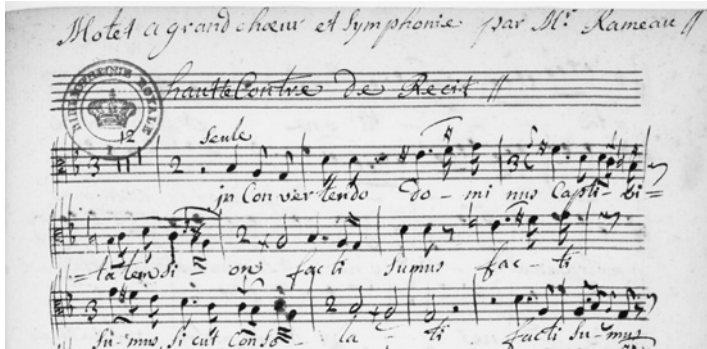 Motet a grand chœur et Symphonie par Mr. Rameau //
BIBLIOTHEQUE ROYALE
haute Contre de Recit //
12 seule
3 2 3
jn Convertendo do - mi nus Capti - vi =
2
= tatem si on facti sumus fac - ti
3 2
su - mus, si cut Conso - la - ti facti su - mus